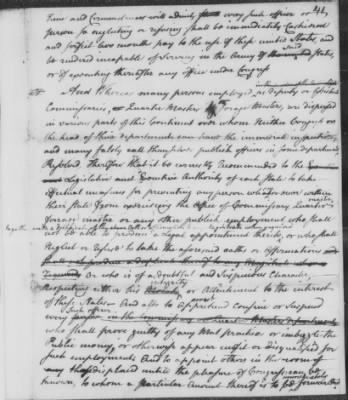 41
Time and Circumstances will admit, every such officer or
person so neglecting or refusing shall be immediately Cashiered
and forfeit two months pay to the use of these united States, and
be rendered incapable of Serving in the Army of said States,
or of executing thereafter any office under Congress
And Whereas many persons employed as deputy or assistant
Commissaries, Quarter Master or forage Master, are dispersed
in various parts of this Continent over whom Neither Congress nor
the head of their departments can have the immediate inspection,
and many falsly call themselves publick officers in some department,
Resolved therefore that it be earnestly Recommended to the
Legislative and Executive Authority of each State to take
effectual measures for preventing any person whatsoever within
their State from exercising the Office of Commissary Quarter master,
forage master or any other publick employment who shall
not be able to produce a legal appointment thereto, or who shall
Neglect or refuse to take the aforesaid oaths or affirmations
Or who is of a doubtful and Suspicious Character
Respecting either his integrity or Attachment to the interest
of these States And also to empower to apprehend Confine or Suspend
every Such officer
who shall prove guilty of any Mal practice or imbezzle the
Public money, or otherwise appear unfit or disqualified for
Such employments And to appoint others in the room of
any displaced until the pleasure of Congress can be
known, to whom a particular Account thereof is to be immediately forwarded